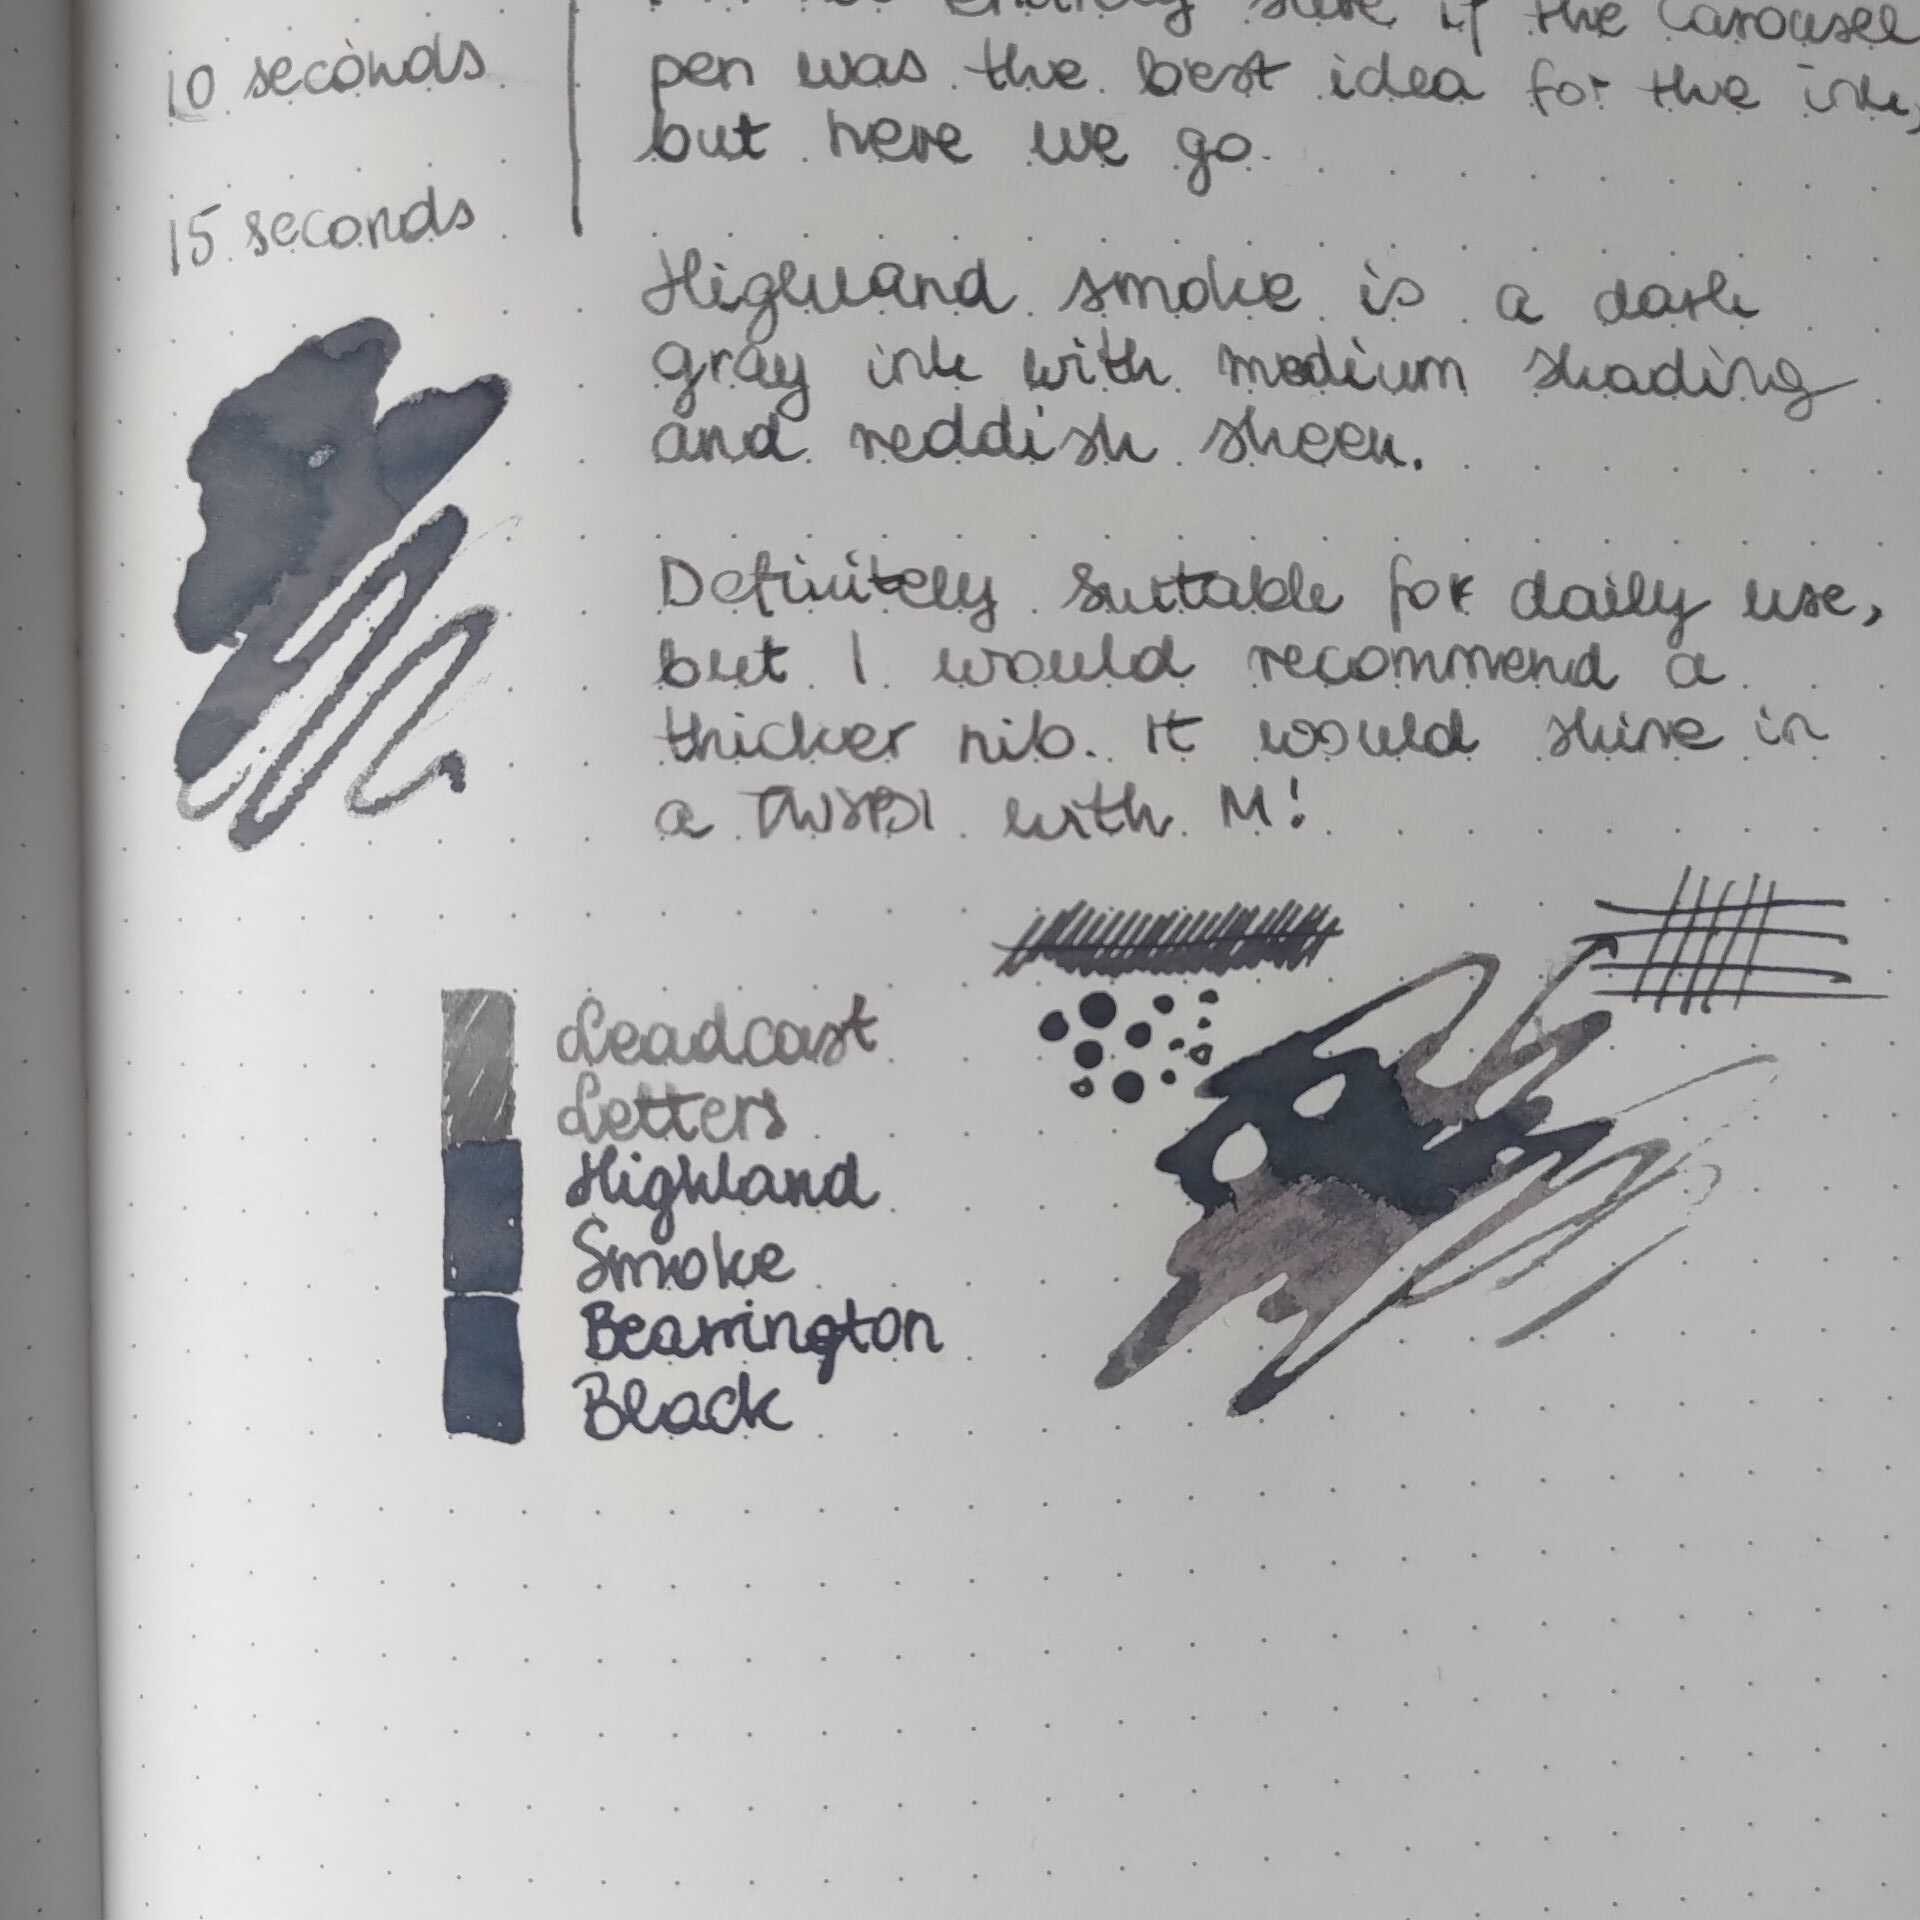 10 seconds
15 seconds
entirely sure if the Carousel
pen was the best idea for the ink,
but here we go.
Highland smoke is a dark
gray ink with medium shading
and reddish sheen.
Definitely suitable for daily use,
but I would recommend a
thicker nib. It would shine in
a TWSBI with M!
Leadcast
Letters
Highland
Smoke
Bearrington
Black